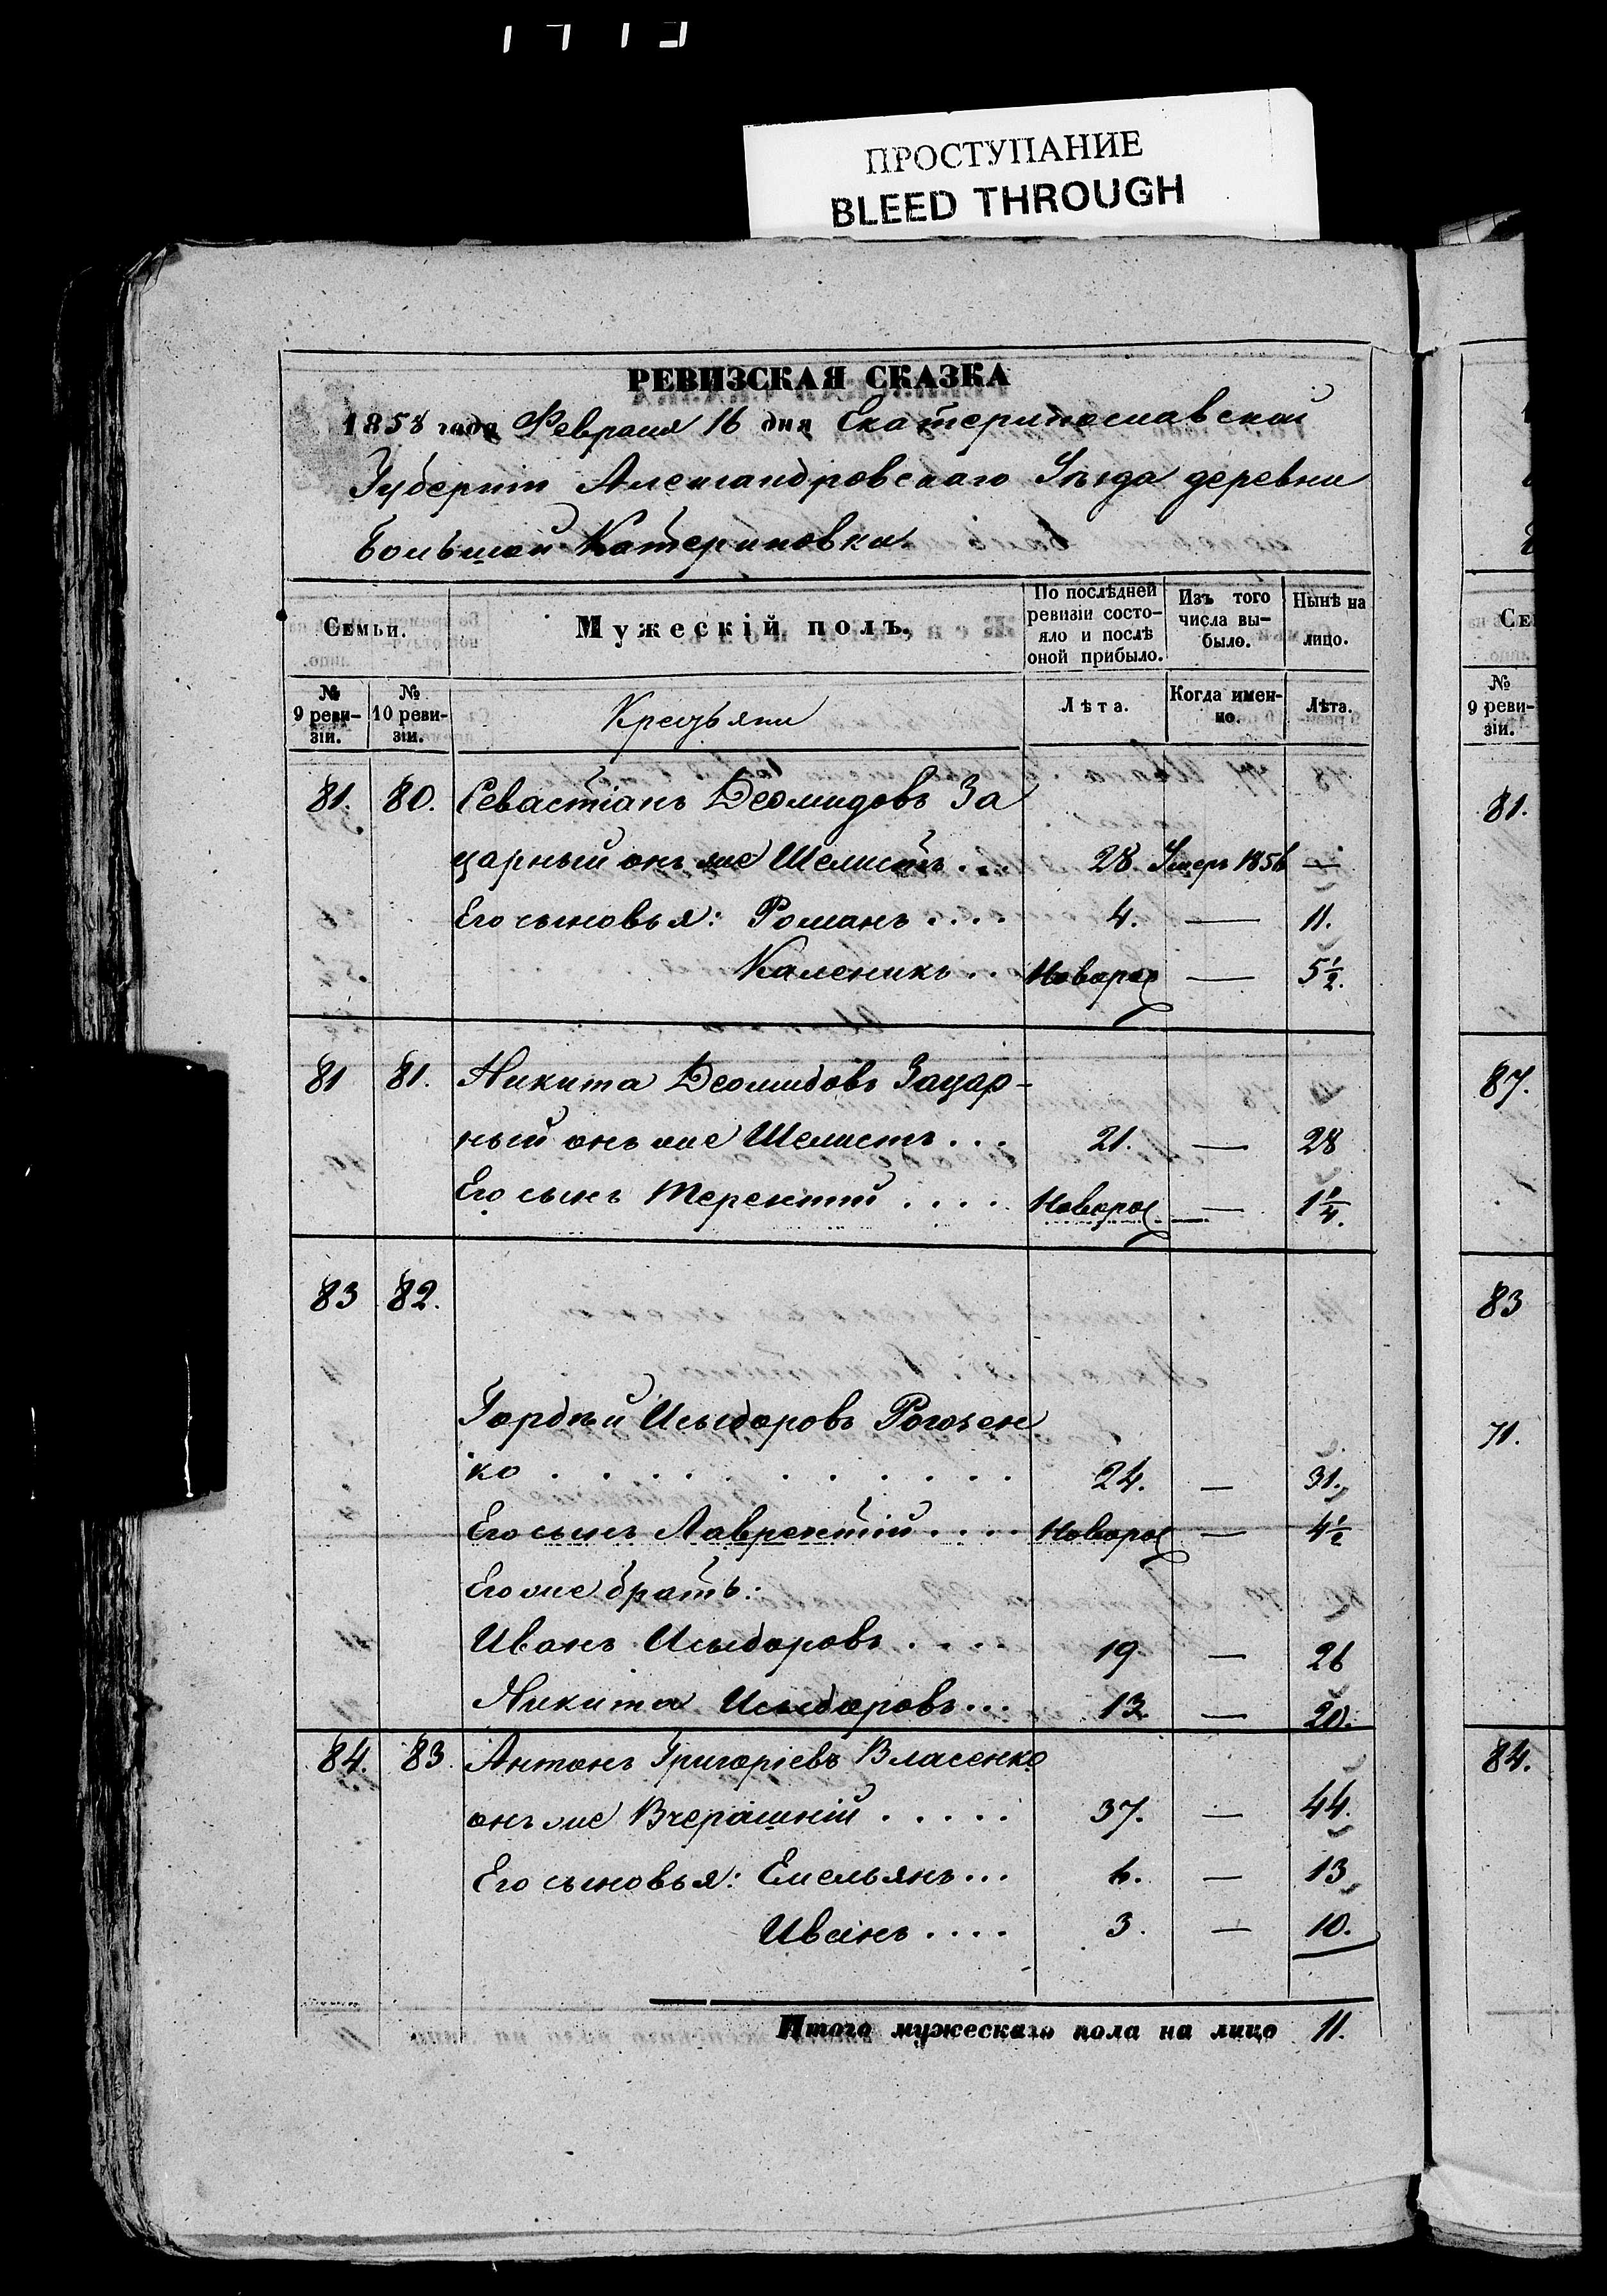 ПРОСТУПАНИЕ
BLEED THROUGH
РЕВИЗСКАЯ СКАЗКА
1858 года Февраля 16 дня Екатеринославской
Губерніи Александровскаго Уѣзда деревни
Большой Катериновки
Семьи.
Мужескій полъ.
По послѣдней
ревизіи состо-
яло и послѣ
оной прибыло.
Изъ того
числа вы-
было.
Нынѣ на
лицо.
№
9 реви-
зіи.
№
10 реви-
зіи.
Крестьяни
Лѣта.
Когда имен-
но.
Лѣта.
81. 80. Севастіанъ Деомидовъ За
царный онъ же Шелистъ... 28 Умеръ 1856 —
Его сыновья: Романъ.... 4. — 11.
Каленикъ... Новорож — 5 1/2.
81 81. Никита Деомидовъ Зацар-
ный онъ же Шелистъ... 21. — 28
Его сынъ Терентій.... Новорож — 1 1/4.
83 82.
Гордѣй Исыдоровъ Рогозен
ко............ 24. — 31.
Его сынъ Лаврентій.... Новорож — 4 1/2
Его же братъ:
Иванъ Исыдоровъ.... 19. — 26
Никита Исыдоровъ... 13. — 20.
84. 83. Антонъ Григоріевъ Власенко
онъ же Вчерашній..... 37. — 44.
Его сыновья: Емельянъ... 6. — 13
Иванъ.... 3. — 10.
Итого мужескаго пола на лицо 11.
Се
№
9 реви-
зіи.
81.
87.
83
71.
84.